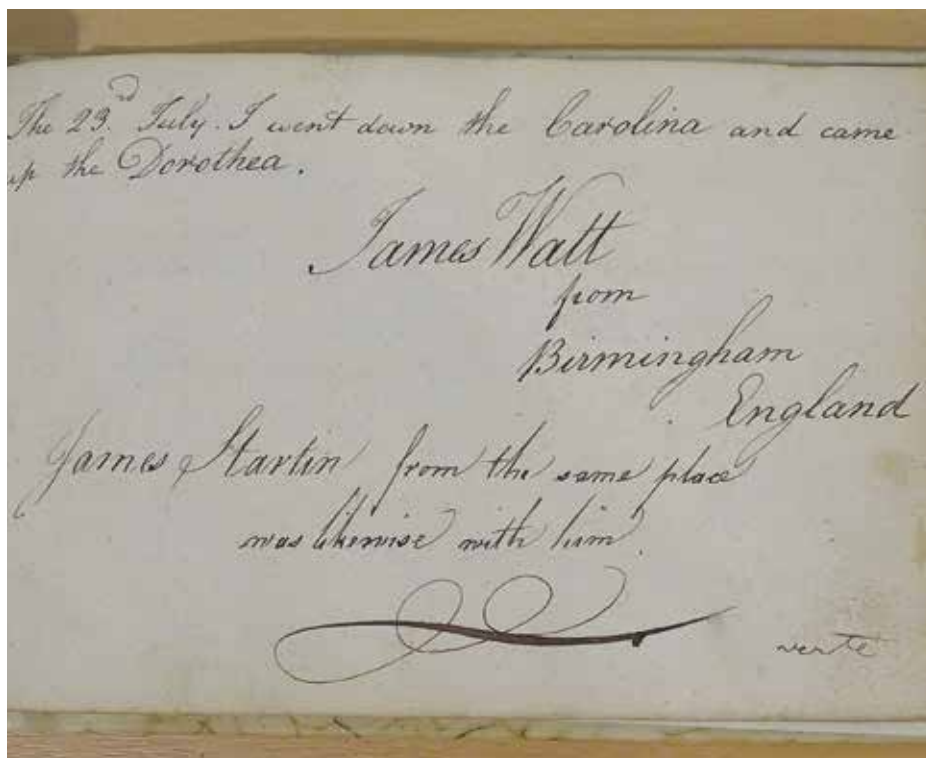 The 23rd July. I went down the Carolina and came
up the Dorothea.
James Watt
from
Birmingham
England
James Startin from the same place
was likewise with him.
verte